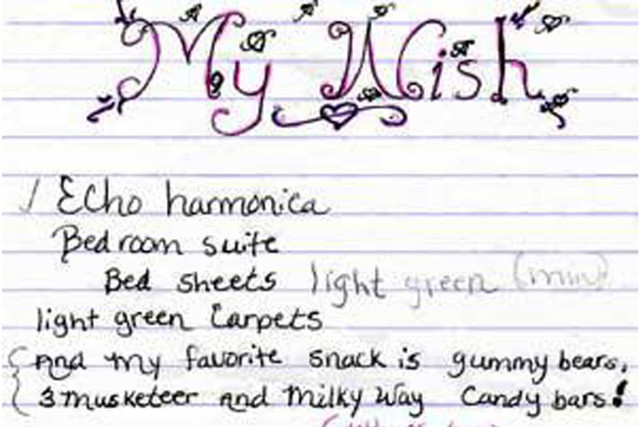 My Wish
Echo harmonica
Bedroom suite
Bed sheets light green (mint)
light green Carpets
And my favorite snack is gummy bears,
3 musketeer And Milky Way Candy bars!